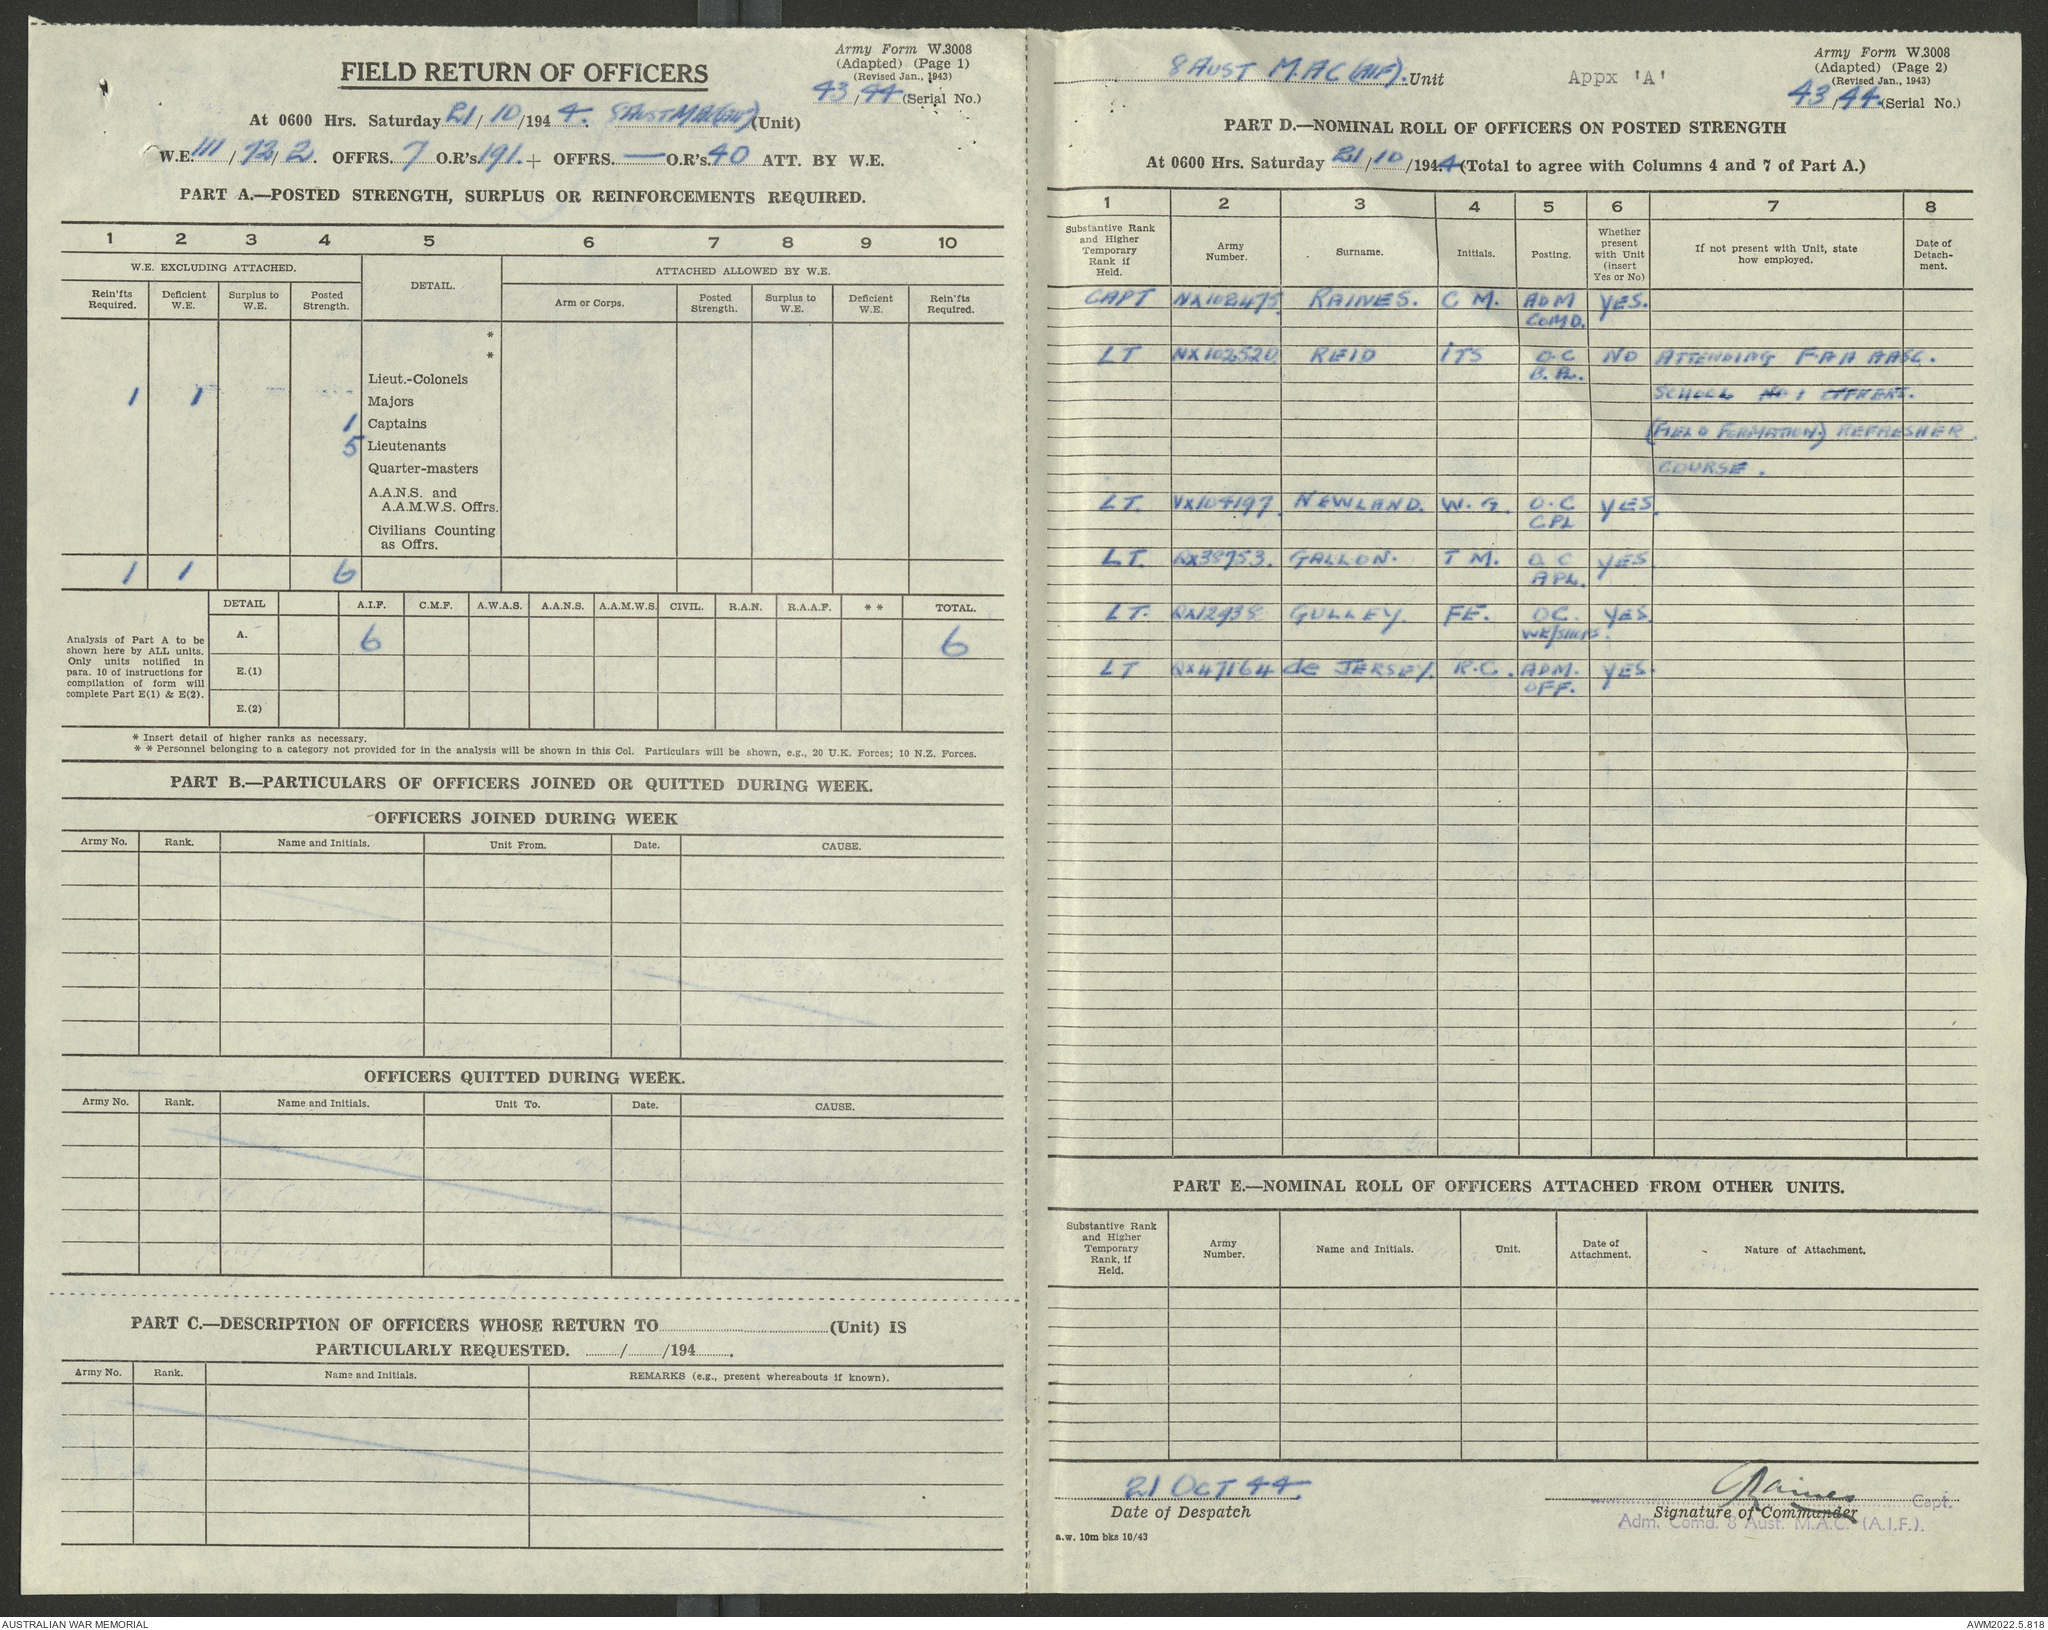 Army Form W.3008
(Adapted) (Page 1)
(Revised Jan., 1943)
43/44 (Serial No.)
FIELD RETURN OF OFFICERS
At 0600 Hrs. Saturday 21/10/1944. 8 AUST M.A.C (AIF) (Unit)
W.E. 111/72/2. OFFRS. 7 O.R's 191. + OFFRS. — O.R's. 40 ATT. BY W.E.
PART A.—POSTED STRENGTH, SURPLUS OR REINFORCEMENTS REQUIRED.
1 2 3 4 5 6 7 8 9 10
W.E. EXCLUDING ATTACHED. DETAIL. ATTACHED ALLOWED BY W.E.
Rein'fts Required. Deficient W.E. Surplus to W.E. Posted Strength. Arm or Corps. Posted Strength. Surplus to W.E. Deficient W.E. Rein'fts Required.
*
*
Lieut.-Colonels
1 1 Majors
1 Captains
5 Lieutenants
Quarter-masters
A.A.N.S. and
A.A.M.W.S. Offrs.
Civilians Counting
as Offrs.
1 1 6
DETAIL A.I.F. C.M.F. A.W.A.S. A.A.N.S. A.A.M.W.S. CIVIL. R.A.N. R.A.A.F. * * TOTAL.
Analysis of Part A to be
shown here by ALL units.
Only units notified in
para. 10 of instructions for
compilation of form will
complete Part E(1) & E(2).
A. 6 6
E.(1)
E.(2)
* Insert detail of higher ranks as necessary.
* * Personnel belonging to a category not provided for in the analysis will be shown in this Col. Particulars will be shown, e.g., 20 U.K. Forces; 10 N.Z. Forces.
PART B.—PARTICULARS OF OFFICERS JOINED OR QUITTED DURING WEEK.
OFFICERS JOINED DURING WEEK
Army No. Rank. Name and Initials. Unit From. Date. CAUSE.
OFFICERS QUITTED DURING WEEK.
Army No. Rank. Name and Initials. Unit To. Date. CAUSE.
PART C.—DESCRIPTION OF OFFICERS WHOSE RETURN TO (Unit) IS
PARTICULARLY REQUESTED. / /194 .
Army No. Rank. Name and Initials. REMARKS (e.g., present whereabouts if known).
8 AUST M.A.C (AIF). Unit
Appx 'A'
Army Form W.3008
(Adapted) (Page 2)
(Revised Jan., 1943)
43/44. (Serial No.)
PART D.—NOMINAL ROLL OF OFFICERS ON POSTED STRENGTH
At 0600 Hrs. Saturday 21/10/1944 (Total to agree with Columns 4 and 7 of Part A.)
1 2 3 4 5 6 7 8
Substantive Rank and Higher Temporary Rank if Held. Army Number. Surname. Initials. Posting. Whether present with Unit (insert Yes or No) If not present with Unit, state how employed. Date of Detach-ment.
CAPT NX102475 RAINES. C M. ADM YES.
COMD.
LT NX102520 REID ITS O.C NO ATTENDING F.A.A AASC.
B. PL.
SCHOOL No 1 OFFICERS.
(FIELD FORMATION) REFRESHER
COURSE.
LT. VX104197 NEWLAND. W. G. O.C YES.
C PL
LT. QX38753. GALLON. T M. O C YES
A PL.
LT. QX12938 GULLEY. F E. OC. YES.
WK/SHOPS.
LT QX47164 de JERSEY. R.C. ADM. YES.
OFF.
PART E.—NOMINAL ROLL OF OFFICERS ATTACHED FROM OTHER UNITS.
Substantive Rank and Higher Temporary Rank, if Held. Army Number. Name and Initials. Unit. Date of Attachment. Nature of Attachment.
21 OCT 44.
Date of Despatch
CRaines Capt.
Signature of Commander
Adm. Comd. 8 Aust. M.A.C. (A.I.F.).
a.w. 10m bks 10/43
AUSTRALIAN WAR MEMORIAL
AWM2022.5.818